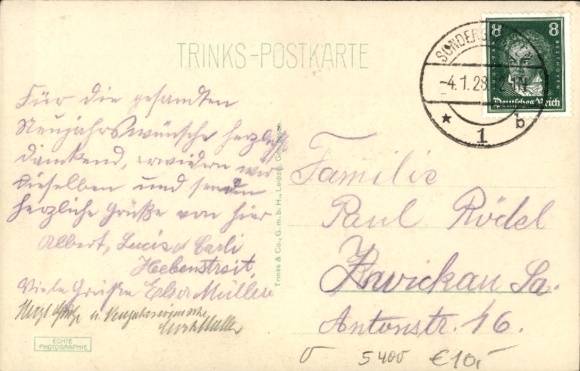 TRINKS-POSTKARTE
SONDERS
-4.1.28
★ 1 b
8 8
Deutsches Reich
Für die gesandten
Neujahrswünsche herzlich
dankend, erwidern wir
dieselben und senden
herzliche Grüße von hier
Albert, Lucie u Carli
Hebenstreit,
Viele Grüße Elsa Müller
Herzl Grüße u. Neujahrswünsche
Familie
Paul Rödel
Zwickau Sa.
Antonstr. 16.
Trinks & Co., G. m. b. H., Leipzig
ECHTE
PHOTOGRAPHIE
5400 €10,-